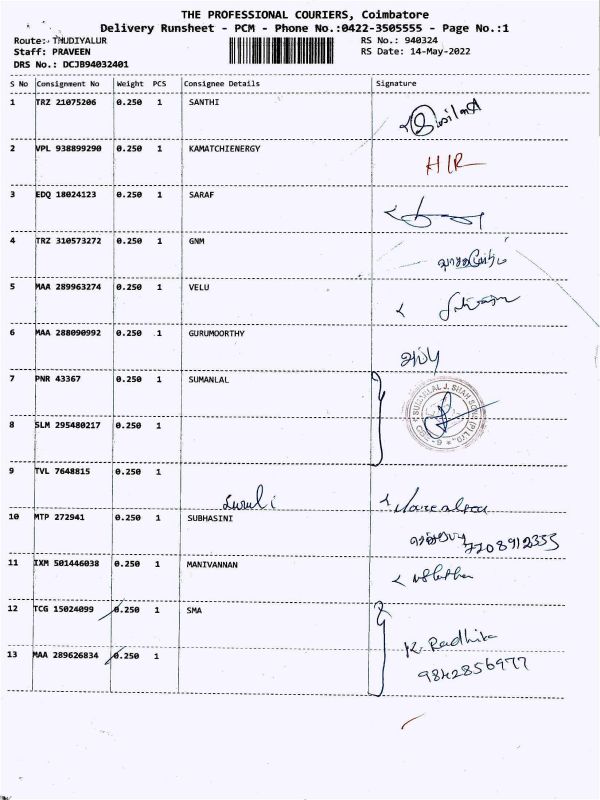 THE PROFESSIONAL COURIERS, Coimbatore
Delivery Runsheet - PCM - Phone No.:0422-3505555 - Page No.:1
Route: THUDIYALUR RS No.: 940324
Staff: PRAVEEN RS Date: 14-May-2022
DRS No.: DCJB94032401
S No Consignment No Weight PCS Consignee Details Signature
1 TRZ 21075206 0.250 1 SANTHI
2 VPL 938899290 0.250 1 KAMATCHIENERGY
3 EDQ 18024123 0.250 1 SARAF
4 TRZ 310573272 0.250 1 GNM
5 MAA 289963274 0.250 1 VELU
6 MAA 288090992 0.250 1 GURUMOORTHY
7 PNR 43367 0.250 1 SUMANLAL
8 SLM 295480217 0.250 1
9 TVL 7648815 0.250 1
10 MTP 272941 0.250 1 SUBHASINI
7708912355
11 IXM 501446038 0.250 1 MANIVANNAN
12 TCG 15024099 0.250 1 SMA
K. Radhika
13 MAA 289626834 0.250 1
9842856977